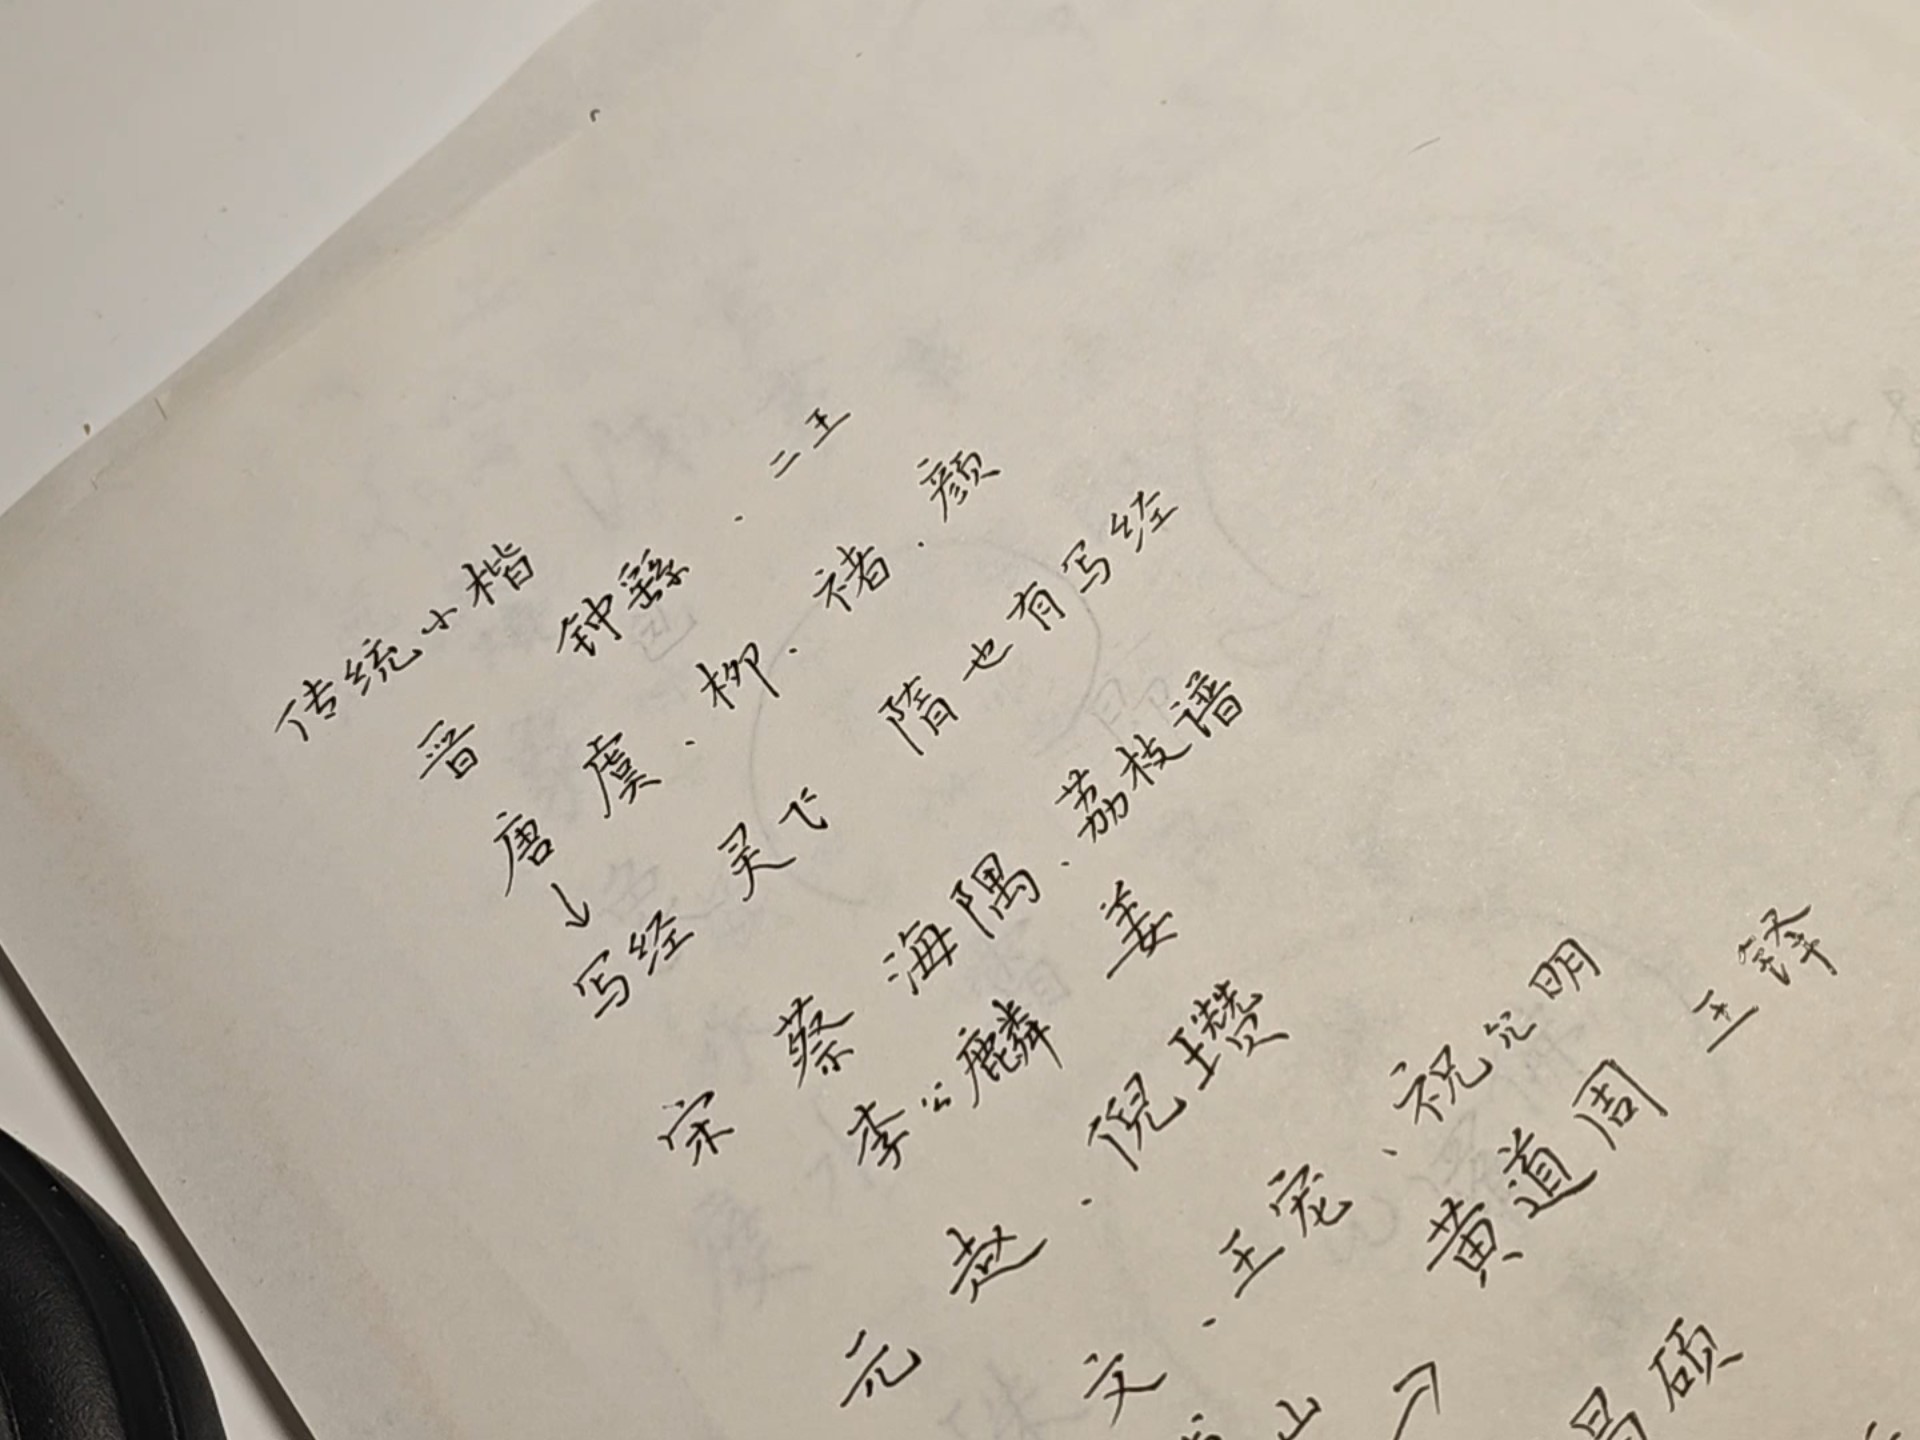 传统小楷
晋 钟繇 . 二王
唐 虞 . 柳 . 褚 . 颜
↓
写经 灵飞 隋也有写经
宋 蔡 海隅 . 荔枝谱
李公麟 姜
元 赵 . 倪瓒
文 . 王宠 . 祝允明
黄道周 王铎
山 昌硕